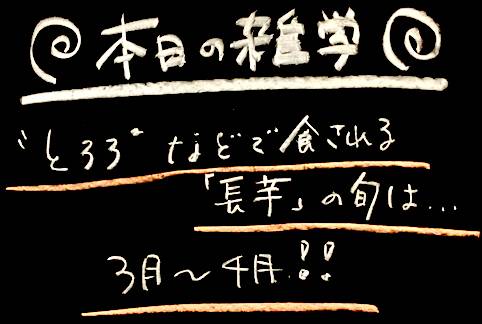 本日の雑学
"とろろ"などで食される
「長芋」の旬は...
3月～4月!!